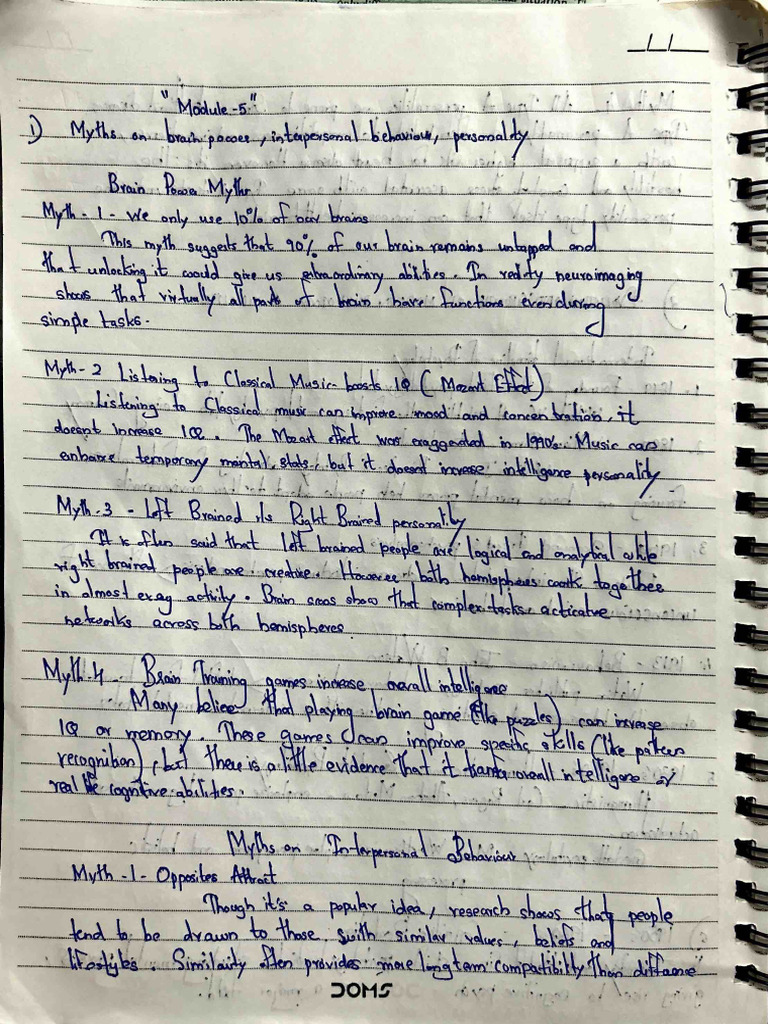 "Module-5"
1) Myths on brain power, interpersonal behaviour, personality
Brain Power Myths
Myth - 1 - We only use 10% of our brains
This myth suggests that 90% of our brain remains untapped and
that unlocking it could give us extraordinary abilities. In reality neuroimaging
shows that virtually all parts of brain have functions even during
simple tasks.
Myth-2 Listening to Classical Music boosts IQ (Mozart Effect)
Listening to Classical music can improve mood and concentration, it
doesnt increase IQ. The Mozart effect was exaggerated in 1990s. Music can
enhance temporary mental state, but it doesnt increase intelligence personality
Myth-3 - Left Brained v/s Right Brained personality
It is often said that left brained people are logical and analytical while
right brained people are creative. However both hemispheres work together
in almost every activity. Brain scans show that complex tasks activate
networks across both hemispheres.
Myth-4 - Brain Training games increase overall intelligence
Many believe that playing brain game (like puzzles) can increase
IQ or memory. These games can improve specific skills (like pattern
recognition), but there is a little evidence that it overall intelligence or
real life cognitive abilities.
Myths on Interpersonal Behaviour
Myth -1- Opposites Attract
Though it's a popular idea, research shows that people
tend to be drawn to those with similar values, beliefs and
lifestyles. Similarity often provides more long term compatibility than difference
DOMS